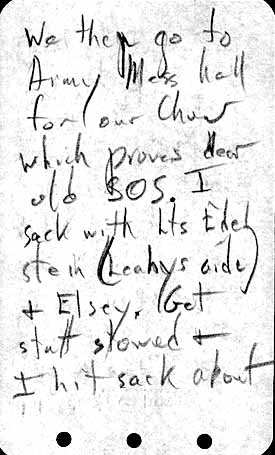 We then go to
Army Mess hall
for our Chow
which proves dear
old SOS. I
sack with Lts Edel
stein (Leahys aide)
+ Elsey. Get
stuff stowed +
I hit sack about